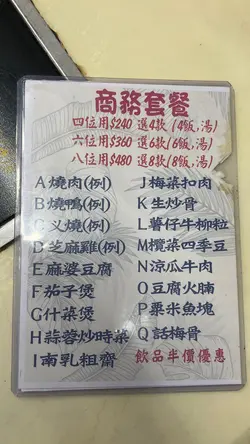 商務套餐
四位用$240 選4款 (4飯,湯)
六位用$360 選6款(6飯,湯)
八位用$480 選8款(8飯,湯)
A燒肉(例)
B燒鴨(例)
C义燒(例)
D芝麻雞(例)
E麻婆豆腐
F茄子煲
G什菜煲
H蒜蓉炒時菜
I南乳粗齋
J梅菜扣肉
K生炒骨
L薯仔牛柳粒
M欖菜四季豆
N涼瓜牛肉
O豆腐火腩
P粟米魚塊
Q話梅骨
飲品半價優惠